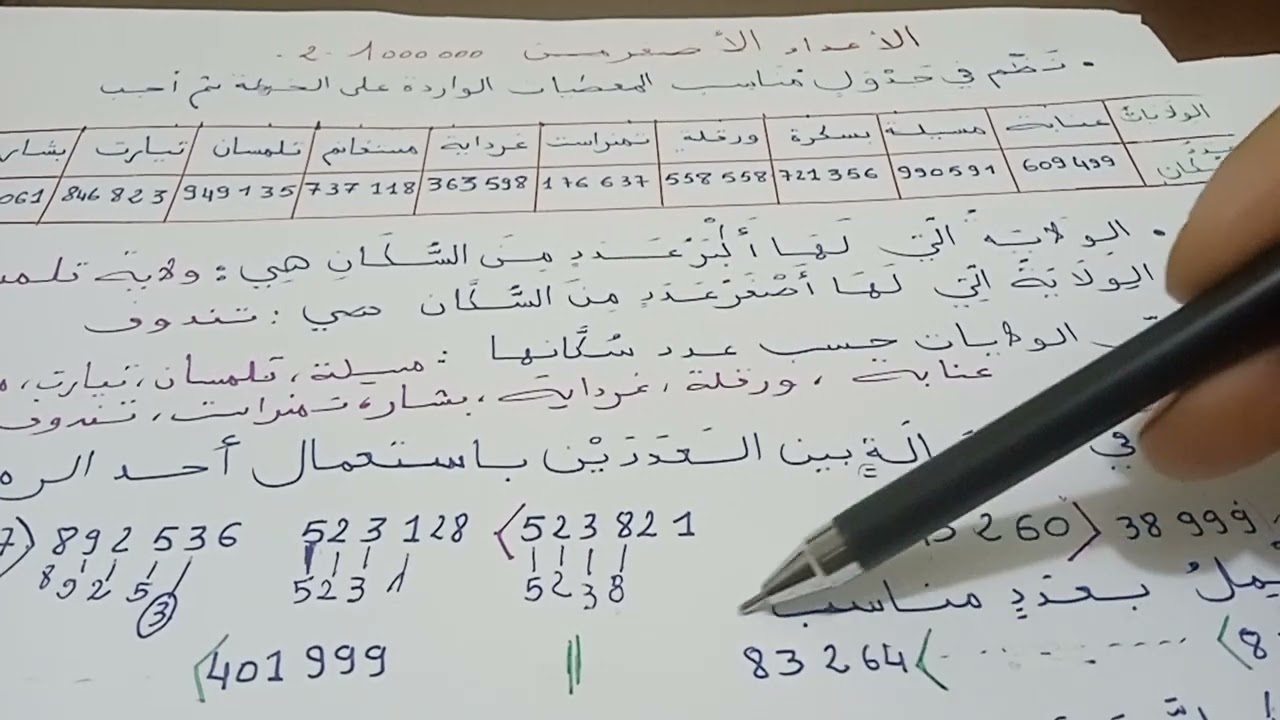 الأعداد الأصغر من 1000 000 - 2 -
• نَظّم في جَدْوَلٍ مُنَاسِبٍ المعطيات الواردة على الخريطة ثم أجب
الولايات عنابة مسيلة بسكرة ورقلة تمنراست غرداية مستغانم تلمسان تيارت بشار
609 499 990 591 721 356 558 558 176 637 363 598 737 118 949 135 846 823 061
• الوِلَايَة الّتي لَهَا أَكْبَرُ عَدَدٍ مِنَ السُّكَّانِ هِيَ : ولاية
الوِلَايَةُ الّتِي لَهَا أَصْغَرُ عَدَدٍ مِنَ السُّكَّانِ هي : تندوف
الولايات حسب عدد سُكَّانها : مسيلة، تلمسان، تيارت،
عنابة، ورقلة، غرداية، بشار، تمنراست، تندوف
في بين العَدَدَيْنِ باستعمال أحد
3 260 > 38 999
523 128 < 523 821
7) 892 536
5 2 3 1 5 2 3 8
8 9 2 5 3
بعددٍ مناسب
83 264 < ............ < 8
|| < 401 999